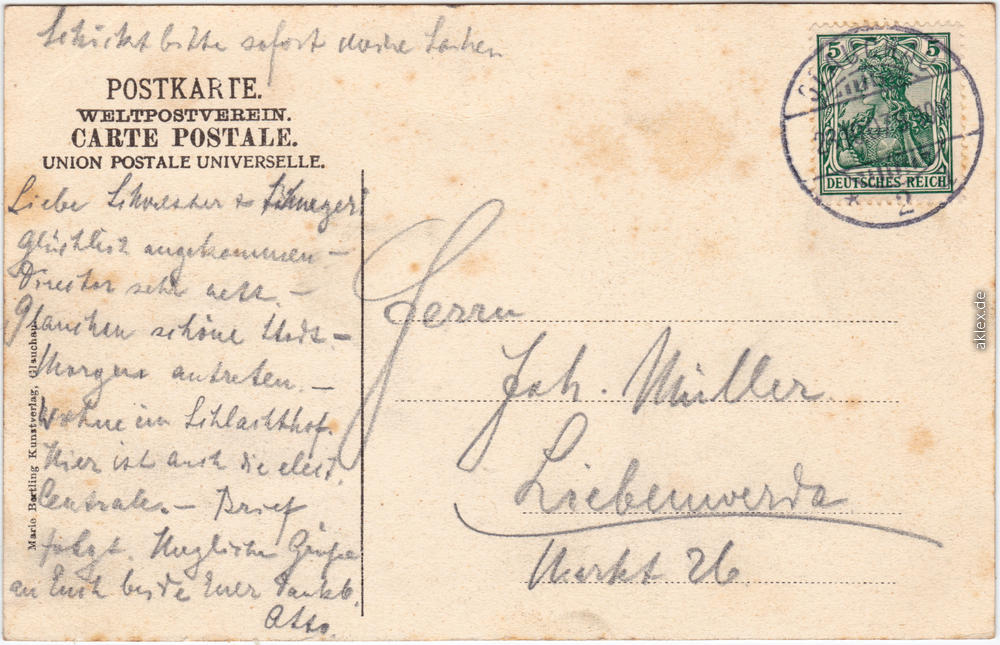 Schickt bitte sofort meine Sachen
POSTKARTE.
WELTPOSTVEREIN.
CARTE POSTALE.
UNION POSTALE UNIVERSELLE.
5 5
DEUTSCHES REICH
* 2
Liebe Schwester & Schwager
Glücklich angekommen –
Director sehr nett. –
Glauchau schöne Stadt –
Morgen antreten. –
Wohne im Schlachthof.
Hier ist auch die elect.
Centrale. – Brief
folgt. Grüße
an Euch beide Euer dankb.
Otto.
Marie Bertling Kunstverlag, Glauchau
Herrn
Joh. Müller
Liebenwerda
Markt 26
aklex.de